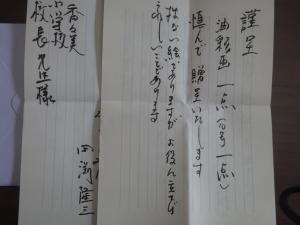 謹呈
油彩画一点(10号一点)
慎んで贈呈いたします
拙ない絵でありますがお役に立てば
うれしいことであります
香々美
小学校
校長先生様
隆三